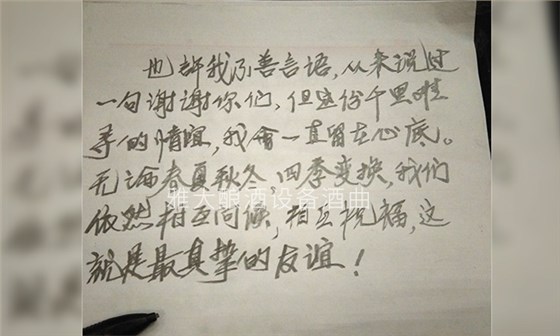 也许我不善言语，从来说过
一句谢谢你们，但这份千里难
寻的情谊，我会一直留在心底。
无论春夏秋冬，四季变换，我们
雅大酿酒设备酒曲
依然相互问候，相互祝福，这
就是最真挚的友谊！